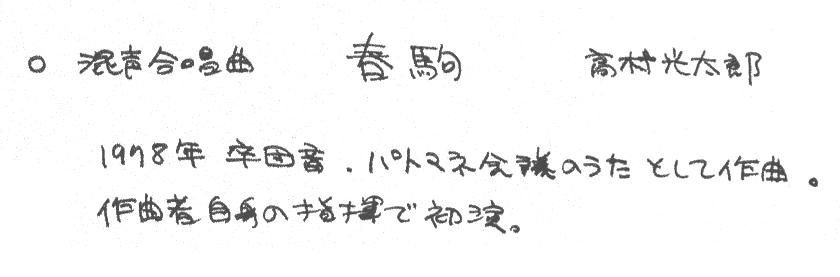 ○ 混声合唱曲 春駒 高村光太郎
1978年 卒団音.パトマネ会議のうた として作曲。
作曲者自身の指揮で初演。